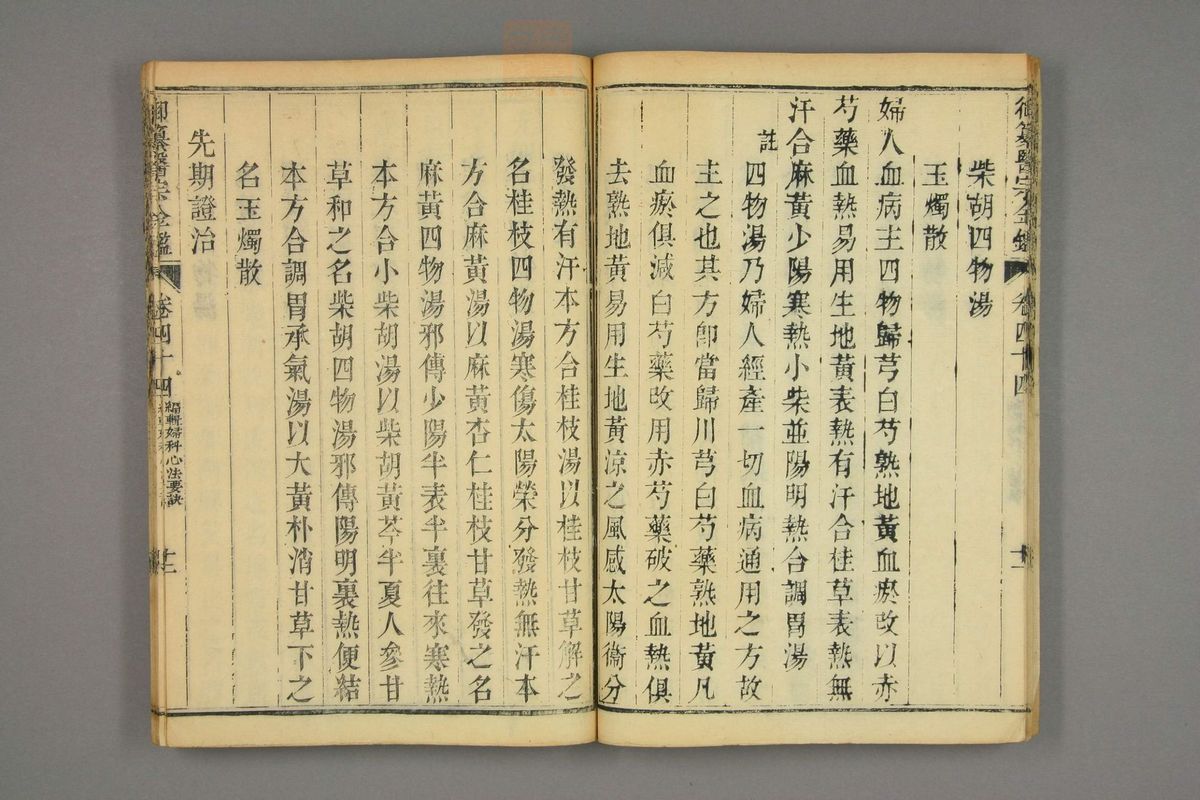 御纂醫宗金鑑
卷四十四
柴胡四物湯
玉燭散
婦人血病主四物歸芎白芍熟地黃血瘀改以赤
芍藥血熱易用生地黃表熱有汗合桂草表熱無
汗合麻黃少陽寒熱小柴並陽明熱合調胃湯
註
四物湯乃婦人經產一切血病通用之方故
主之也其方卽當歸川芎白芍藥熟地黃凡
血瘀俱減白芍藥改用赤芍藥破之血熱俱
去熟地黃易用生地黃涼之風感太陽衞分
發熱有汗本方合桂枝湯以桂枝甘草解之
名桂枝四物湯寒傷太陽榮分發熱無汗本
方合麻黃湯以麻黃杏仁桂枝甘草發之名
麻黃四物湯邪傳少陽半表半裏往來寒熱
本方合小柴胡湯以柴胡黃芩半夏人參甘
草和之名柴胡四物湯邪傳陽明裏熱便結
本方合調胃承氣湯以大黃朴消甘草下之
名玉燭散
先期證治
御纂醫宗金鑑
卷四十四
編輯婦科心法要訣